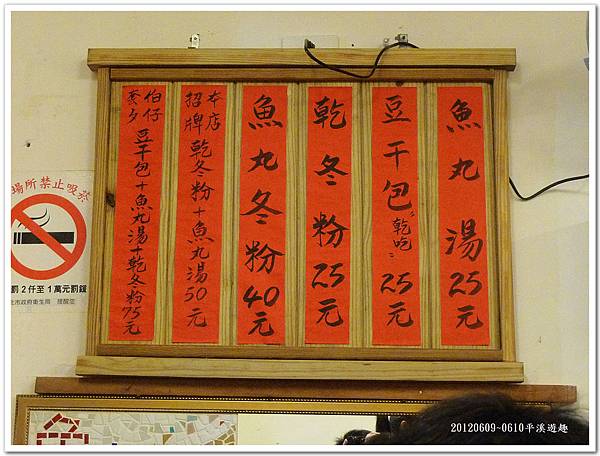 魚丸湯25元
豆干包"乾吃"25元
乾冬粉25元
魚丸冬粉40元
本店
招牌
乾冬粉+魚丸湯50元
伯仔
套夕
豆干包+魚丸湯+乾冬粉75元
場所禁止吸菸
罰2仟至1萬元罰鍰
北市政府衛生局 提醒您
20120609~0610平溪遊趣